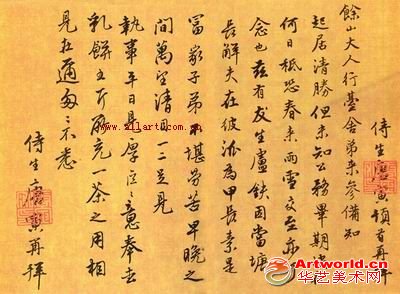 侍生唐寅頓首再拜
餘山大人行臺舍弟來參備知
起居清勝但未知公務畢期
何日秪恐春來雨雪交至亦
念也茲有友生盧鈇因當塘
長解夫在彼派為甲長素是
冨家子弟不堪勞苦早晚之
間萬望清目一二足見
執事平日厚之意奉去
乳餅五斤聊充一茶之用相
見在邇匆匆不悉
侍生唐寅再拜
Artworld.cn
华艺美术网